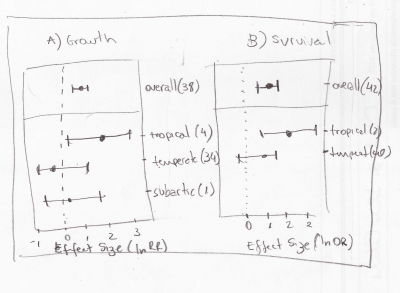 A) Growth
overall (38)
tropical (4)
temperate (34)
subartic (1)
-1 0 1 2 3
Effect Size (ln RR)
B) Survival
overall (42)
tropical (2)
temperat (40)
0 1 2 2
Effect Size (ln OR)